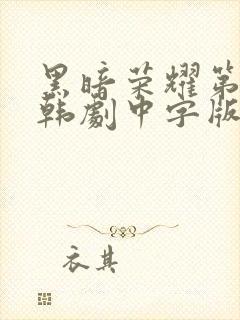 黑暗荣耀第
韩劇中字版
衣其